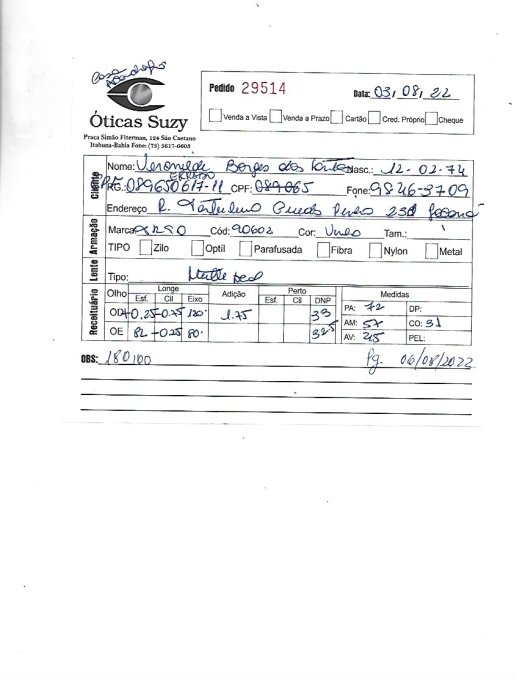 Óticas Suzy
Praça Simão Fiterman, 124 São Caetano
Itabuna-Bahia Fone: (73) 3617-0805
Pedido 29514 Data: 03/08/22
Venda a Vista Venda a Prazo Cartão Cred. Próprio Cheque
Cliente
Nome: Borges dos Nasc.: 12-02-74
ERRADO
RG.: 089650617-11 CPF: 089065 Fone: 9846-3709
Endereço R. 230
Armação
Marca: Cód: 90602 Cor: Tam.:
TIPO Zilo Optil Parafusada Fibra Nylon Metal
Lente
Tipo:
Receituário
Olho Longe Adição Perto DNP Medidas
Esf. Cil Eixo Esf. Cil
OD +0,25 -0.75 120° 1.75 33 PA: 72 DP:
OE -0.25 80° 32,5 AM: 57 CO: 31
AV: PEL:
OBS: 180,00 Pg. 06/08/2022